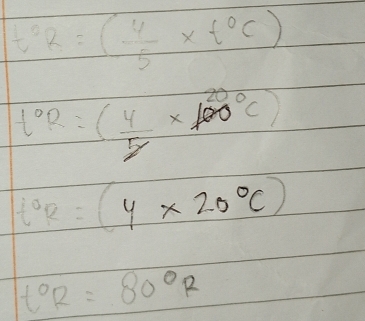 t°R = (4/5 × t°C)
t°R = (4/5 × 100 20°C)
t°R = (4 × 20°C)
t°R = 80°R